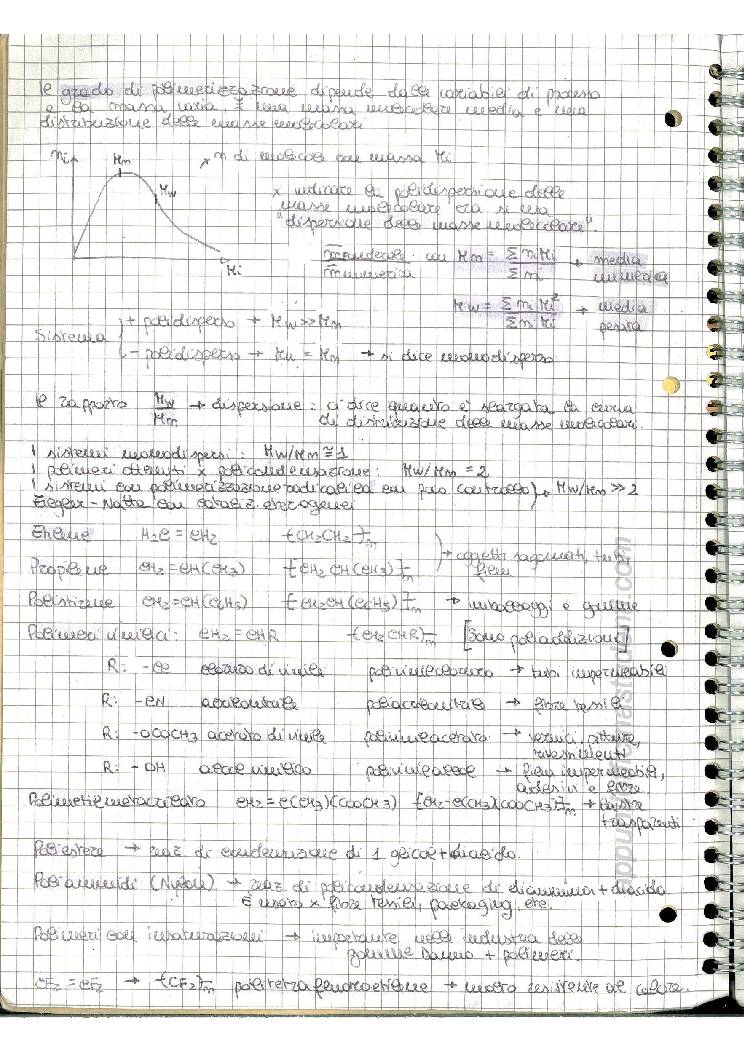 Il grado di polimerizzazione dipende dalle variabili di processo
e la massa varia. È una massa molecolare media e una
distribuzione delle masse molecolari
ni Mn x n di molecole con massa Mi
Mw
x indicare la polidispersione delle
masse molecolare ora si usa
"dispersione delle masse molecolare".
Mi
con Mn = Σ ni Mi / Σ ni → media numerica
Mw = Σ ni Mi² / Σ ni Mi → media pesata
Sistema
+ polidisperso → Mw >> Mn
- polidisperso → Mw = Mn → si dice monodisperso
Il rapporto Mw/Mn → dispersione: ci dice quanto è slargata la curva
di distribuzione delle masse molecolari.
I sistemi monodispersi: Mw/Mn ≅ 1
I polimeri ottenuti x policondensazione: Mw/Mn = 2
I sistemi con polimerizzazione radicalica con poco controllo, Mw/Mn >> 2
Ziegler-Natta con cataliz. eterogenei
Etilene H2C=CH2 -[CH2CH2]-n
→ oggetti sagomati, tubi, film
Propilene CH2=CH(CH3) -[CH2CH(CH3)]-n
Polistirene CH2=CH(C6H5) -[CH2CH(C6H5)]-n → imballaggi e
Polimeri vinilici: CH2=CHR -[CH2CHR]-n [Sono poliaddizione]
R: -Cl cloruro di vinile polivinilcloruro → tubi impermeabili
R: -CN acrilonitrile poliacrilonitrile → fibre tessili
R: -OCOCH3 acetato di vinile polivinilacetato → vernici, pitture,
rivestimenti
R: -OH alcol vinilico polivinilalcol → film impermeabili,
adesivi e fibre
Polimetilmetacrilato CH2=C(CH3)(COOCH3) -[CH2-C(CH3)(COOCH3)]-n → lastre
trasparenti
Poliestere → reaz di condensazione di 1 glicol + diacido.
Poliammidi (Nylon) → reaz di policondensazione di diammina + diacido
È usato x fibre tessili, packaging, etc.
Polimeri con insaturazioni → importante nelle industria delle
gomme
CF2=CF2 → -[CF2]-n politetrafluoroetilene → molto resistente al calore.